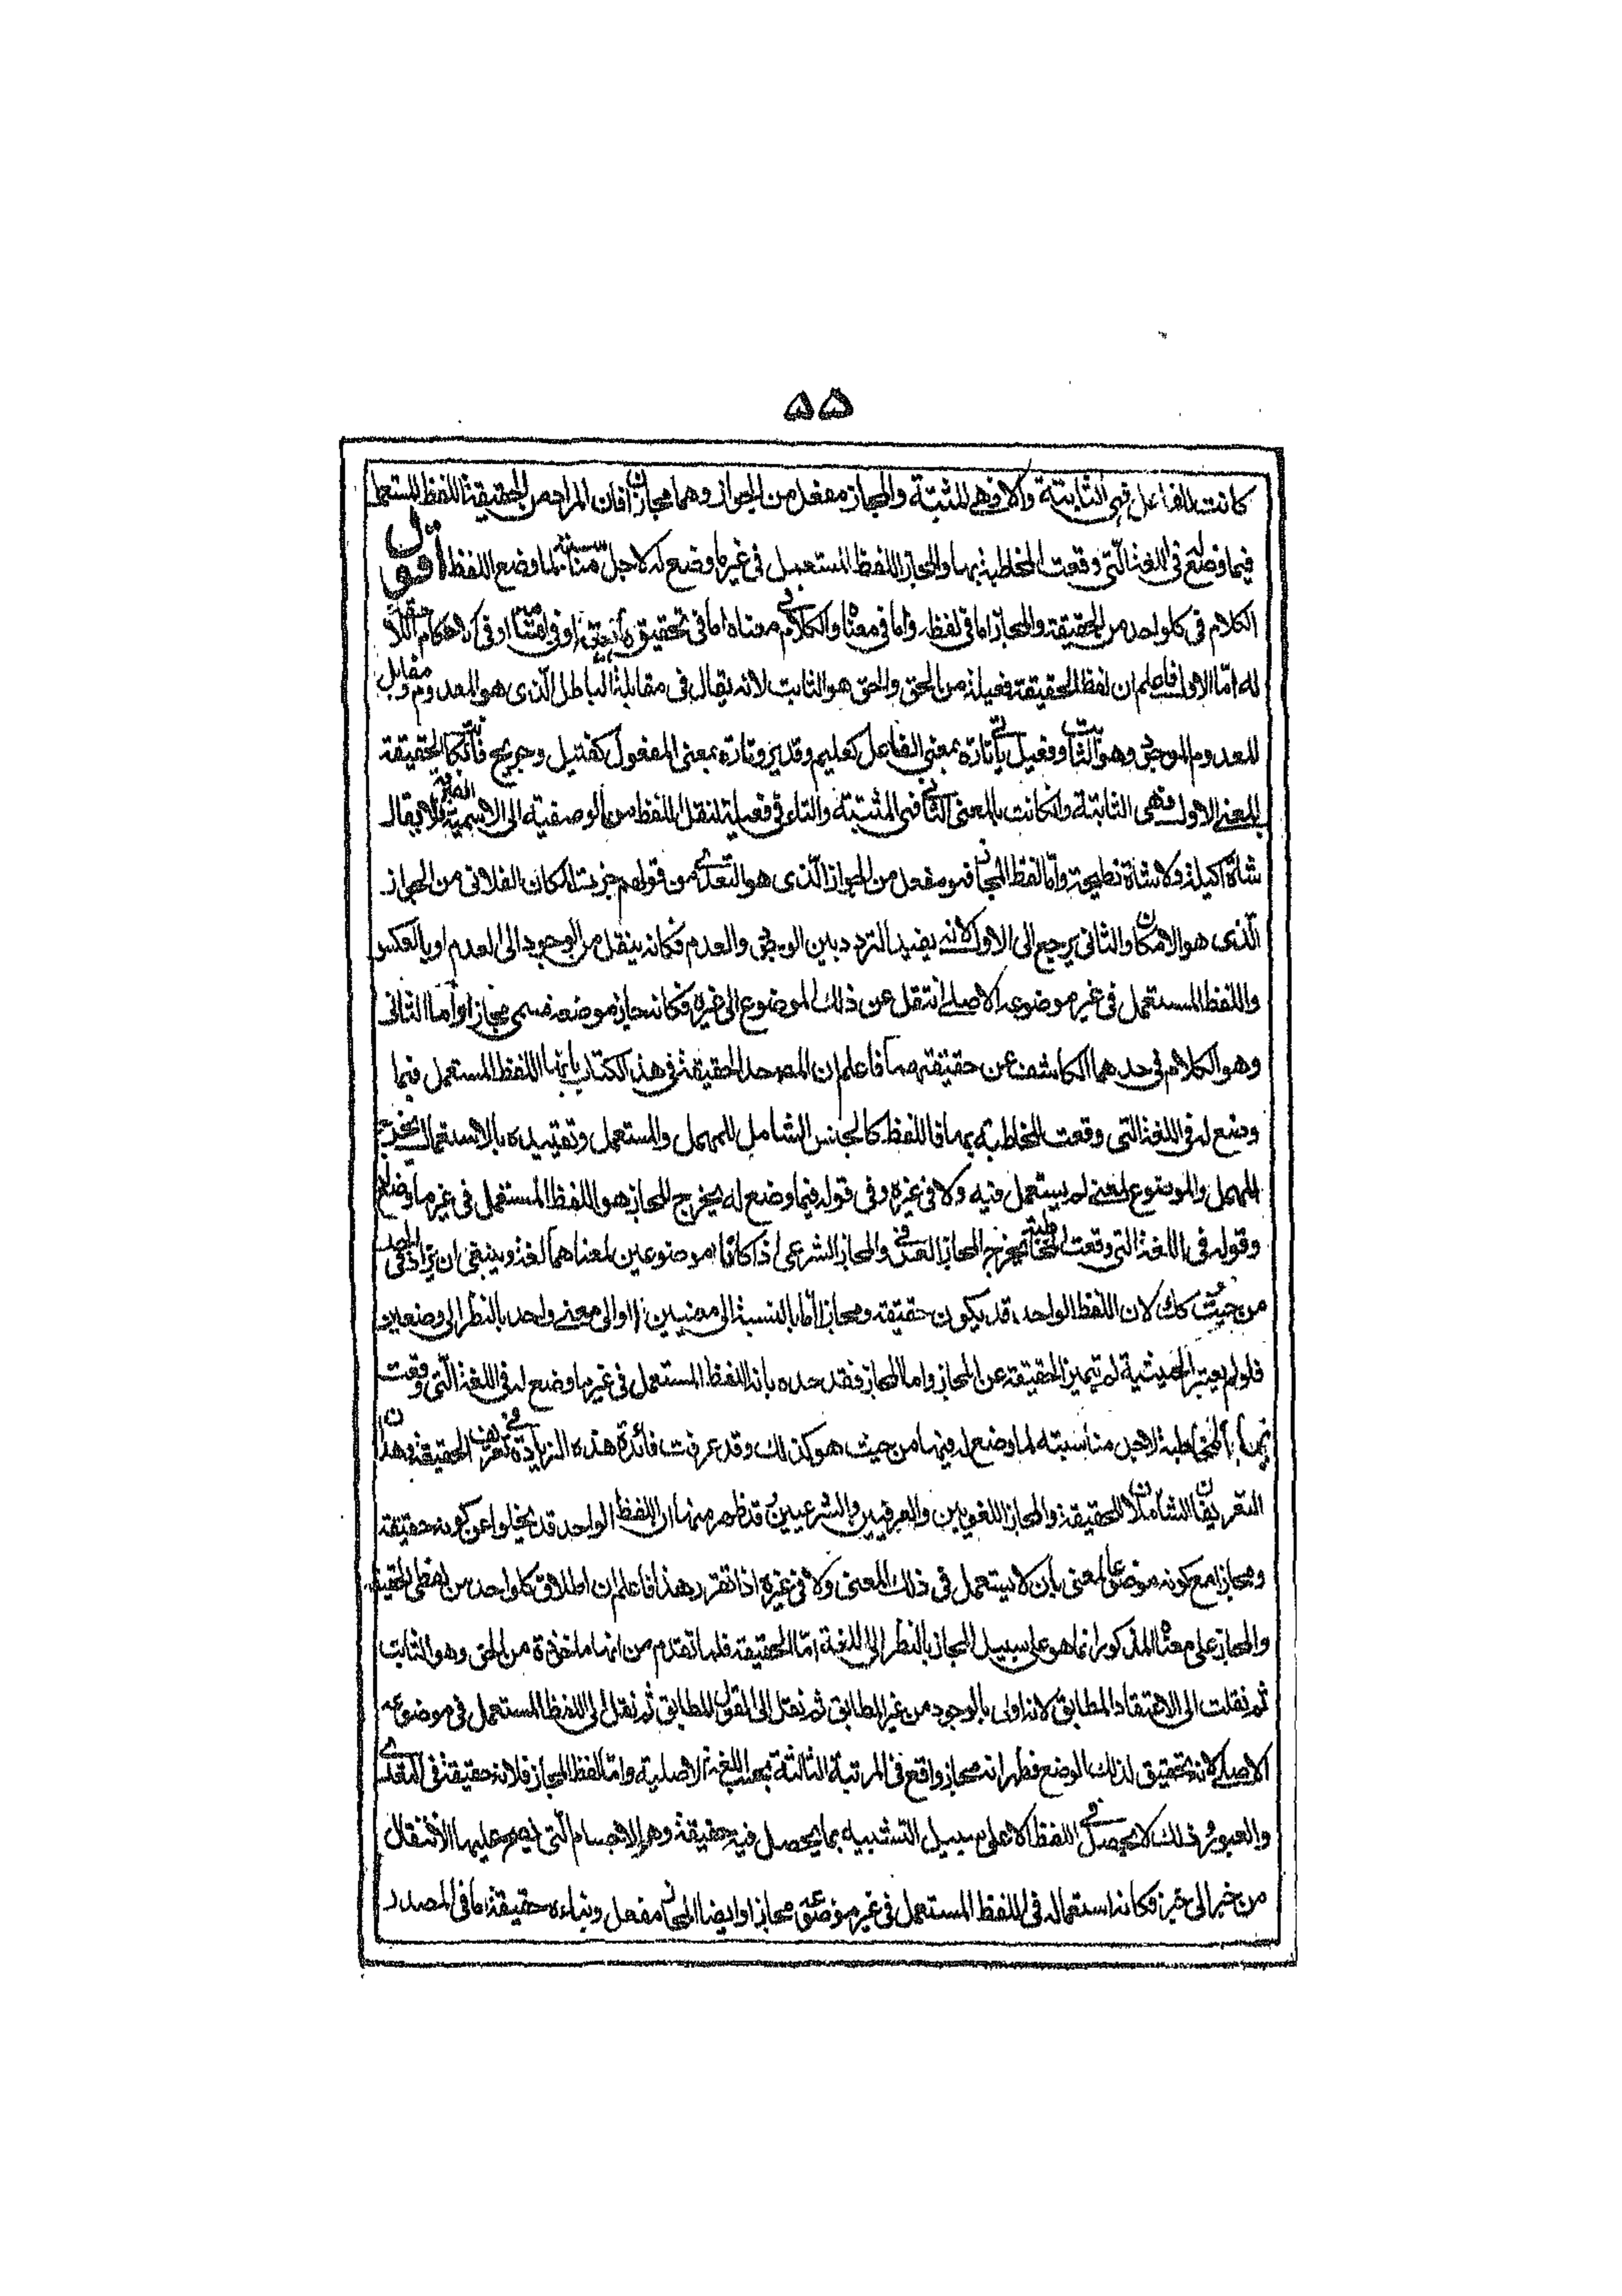 ۵۵
كانت للفاعل فهى الثابتة والا فهى المثبتة والمجاز مفعل من الجواز وهما مجازان فان المراد من الحقيقة اللفظ المستعمل
فيما وضع له فى اللغة التى وقعت المخاطبة بها والمجاز اللفظ المستعمل فى غير ما وضع له لاجل مناسبته لما وضع اللفظ اقول
الكلام فى كل واحد من الحقيقة والمجاز اما فى لفظه واما فى معناه والكلام فى معناه اما فى تحقيق او فى اقسامه او فى الاحكام اللاحقة
له اما الاول فاعلم ان لفظ الحقيقة فعيلة من الحق والحق هو الثابت لانه يقال فى مقابلة الباطل الذى هو المعدوم ومقابل
المعدوم الموجود وهو الثابت وفعيل ياتى تارة بمعنى الفاعل كعليم وقدير وتارة بمعنى المفعول كقتيل وجريح فان كانت الحقيقة
بالمعنى الاول فهى الثابتة وان كانت بالمعنى الثانى فهى المثبتة والتاء فى فعيلة لنقل اللفظ من الوصفية الى الاسمية الصرفة فلا يقال
شاة اكيلة ولا شاة نطيحة واما لفظ المجاز فهو مفعل من الجواز الذى هو التعدى من قولهم جزت المكان الفلانى من الجواز
الذى هو الامكان والثانى يرجع الى الاول لانه يفيد التردد بين الوجود والعدم فكانه ينقل من الوجود الى العدم او بالعكس
واللفظ المستعمل فى غير موضوعه الاصلى انتقل عن ذلك الموضوع الى غيره فكانه جاز موضعه فسمى مجازا واما الثانى
وهو الكلام فى حدهما الكاشف عن حقيقتهما فاعلم ان المص حد الحقيقة فى هذا الكتاب بانها اللفظ المستعمل فيما
وضع له فى اللغة التى وقعت المخاطبة بها فاللفظ كالجنس الشامل للمهمل والمستعمل وتقييده بالاستعمال يخرج
المهمل والموضوع لمعنى لم يستعمل فيه ولا فى غيره وفى قوله فيما وضع له يخرج المجاز هو اللفظ المستعمل فى غير ما وضع له
وقوله فى اللغة التى وقعت المخاطبة يخرج المجاز العرفى والمجاز الشرعى اذا كانا موضوعين لمعناهما لغة وينبغى ان يزاد فى الحد
من حيث كك لان اللفظ الواحد قد يكون حقيقة ومجازا اما بالنسبة الى معنيين او الى معنى واحد بالنظر الى وضعين و
فلو لم يعتبر الحيثية لم تتميز الحقيقة عن المجاز واما المجاز فقد حده بانه اللفظ المستعمل فى غير ما وضع له فى اللغة التى وقعت
بها المخاطبة لاجل مناسبته لما وضع له فيها من حيث هو كذلك وقد عرفت فائدة هذه الزيادة فى تعريف الحقيقة وهذان
التعريفان الشاملان للحقيقة والمجاز اللغويين والعرفيين والشرعيين قد ظهر منهما ان اللفظ الواحد قد يخلوا عن كونه حقيقة
ومجازا مع كونه موضوعا لمعنى بان لا يستعمل فى ذلك المعنى ولا فى غيره اذا تقرر هذا فاعلم ان اطلاق كل واحد من لفظى الحقيقة
والمجاز على معناه المذكور انما هو على سبيل المجاز بالنظر الى اللغة اما الحقيقة فلما تقدم من انها ماخوذة من الحق وهو الثابت
ثم نقلت الى الاعتقاد المطابق لانه اولى بالوجود من غير المطابق ثم نقل الى القول المطابق ثم نقل الى اللفظ المستعمل فى موضوعه
الاصلى لانه تحقيق لذلك الوضع فظهر انه مجاز واقع فى المرتبة الثالثة بحسب اللغة الاصلية واما لفظ المجاز فلانه حقيقة فى التعدى
والعبور وذلك لا يحصل فى اللفظ الا على سبيل التشبيه بما يحصل فيه حقيقة وهو الاجسام التى يصح عليها الانتقال
من حيز الى حيز فكان استعماله فى اللفظ المستعمل فى غير موضوعه مجازا وايضا المجاز مفعل وبناءه حقيقة اما فى المصدر